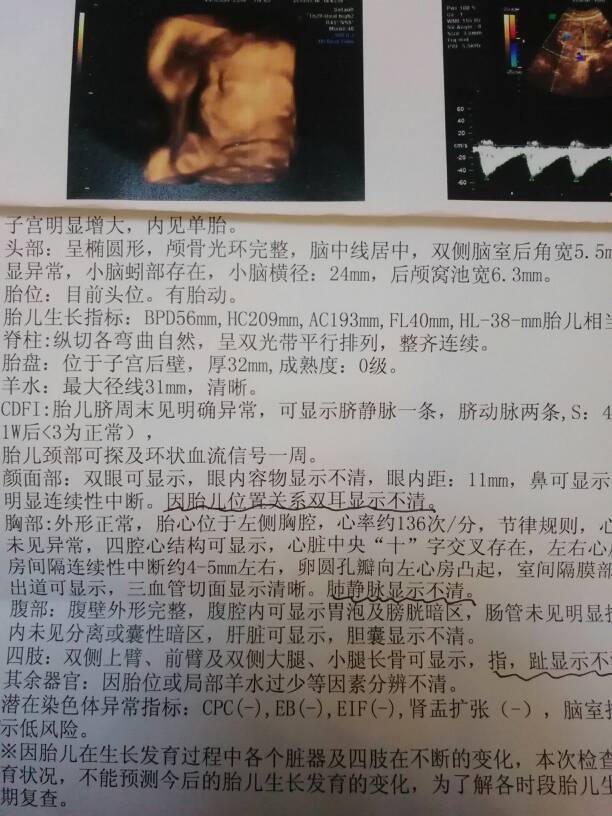 子宫明显增大，内见单胎。
头部：呈椭圆形，颅骨光环完整，脑中线居中，双侧脑室后角宽5.5m
显异常，小脑蚓部存在，小脑横径：24mm，后颅窝池宽6.3mm。
胎位：目前头位。有胎动。
胎儿生长指标：BPD56mm,HC209mm,AC193mm,FL40mm,HL-38-mm胎儿相当
脊柱:纵切各弯曲自然，呈双光带平行排列，整齐连续。
胎盘：位于子宫后壁，厚32mm,成熟度：0级。
羊水：最大径线31mm，清晰。
CDFI:胎儿脐周末见明确异常，可显示脐静脉一条，脐动脉两条,S：4
1W后<3为正常），
胎儿颈部可探及环状血流信号一周。
颜面部：双眼可显示，眼内容物显示不清，眼内距：11mm，鼻可显示
明显连续性中断。因胎儿位置关系双耳显示不清。
胸部:外形正常，胎心位于左侧胸腔，心率约136次/分，节律规则，心
未见异常，四腔心结构可显示，心脏中央“十”字交叉存在，左右心房
房间隔连续性中断约4-5mm左右，卵圆孔瓣向左心房凸起，室间隔膜部
出道可显示，三血管切面显示清晰。肺静脉显示不清。
腹部：腹壁外形完整，腹腔内可显示胃泡及膀胱暗区，肠管未见明显扩
内未见分离或囊性暗区，肝脏可显示，胆囊显示不清。
四肢：双侧上臂、前臂及双侧大腿、小腿长骨可显示，指，趾显示不
其余器官：因胎位或局部羊水过少等因素分辨不清。
潜在染色体异常指标：CPC(-),EB(-),EIF(-),肾盂扩张（-），脑室扩
示低风险。
※因胎儿在生长发育过程中各个脏器及四肢在不断的变化，本次检查
育状况，不能预测今后的胎儿生长发育的变化，为了解各时段胎儿生
期复查。